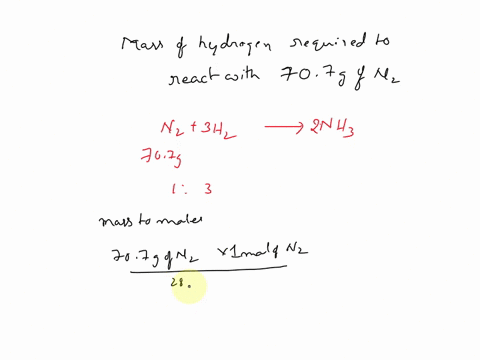 Mass of hydrogen required to
react with 70.7g of N2
N2 + 3H2 → 2NH3
70.7g
1 : 3
mass to moles
70.7g of N2 × 1 mol of N2
28.